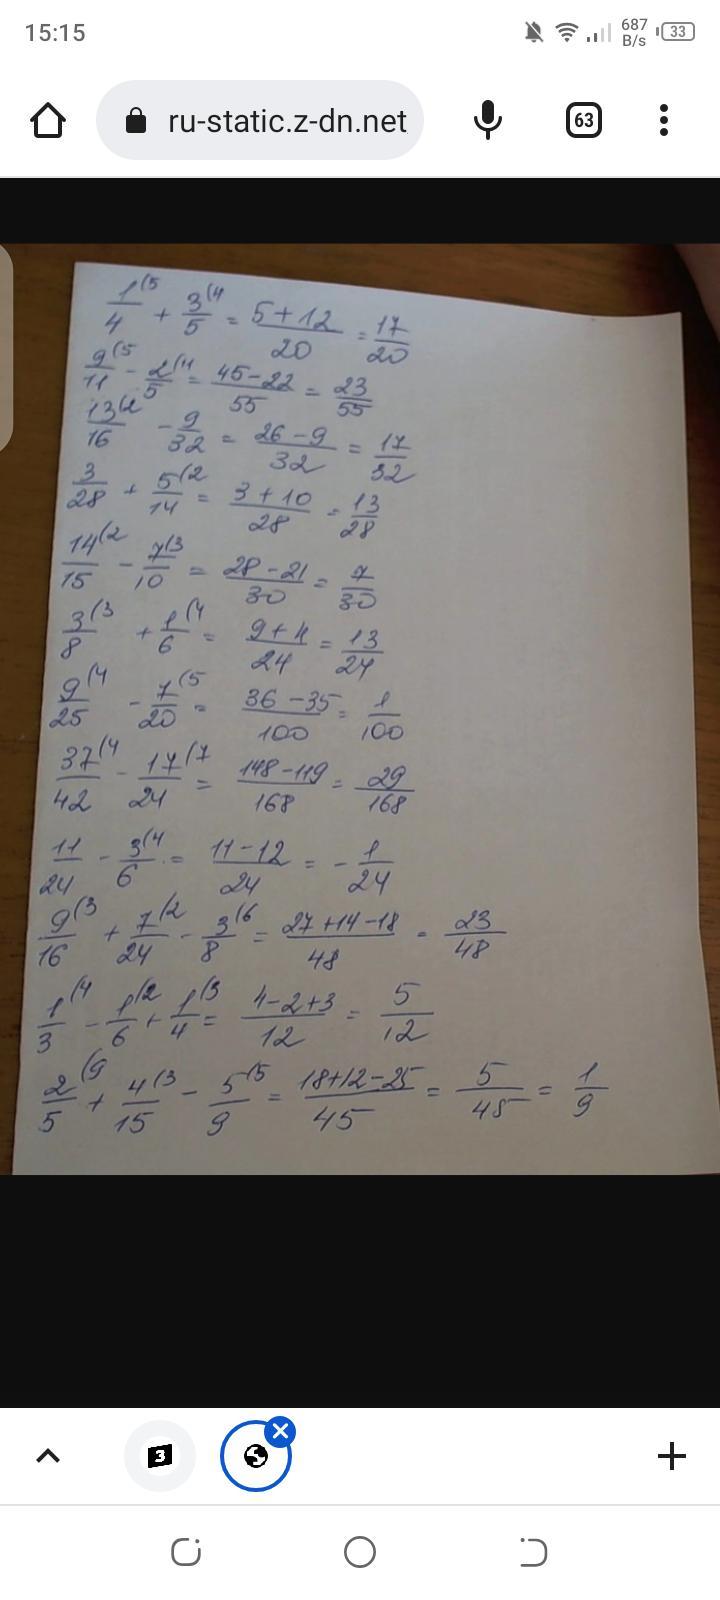 15:15
687 B/s 33
ru-static.z-dn.net 63
1/4 (5 + 3/5 (4 = 5+12/20 = 17/20
9/11 (5 - 2/5 (11 = 45-22/55 = 23/55
13/16 (2 - 9/32 = 26-9/32 = 17/32
3/28 + 5/14 (2 = 3+10/28 = 13/28
14/15 (2 - 7/10 (3 = 28-21/30 = 7/30
3/8 (3 + 1/6 (4 = 9+4/24 = 13/24
9/25 (4 - 7/20 (5 = 36-35/100 = 1/100
37/42 (4 - 17/24 (7 = 148-119/168 = 29/168
11/24 - 3/6 (4 = 11-12/24 = - 1/24
9/16 (3 + 7/24 (2 - 3/8 (6 = 27+14-18/48 = 23/48
1/3 (4 - 1/6 (2 + 1/4 (3 = 4-2+3/12 = 5/12
2/5 (9 + 4/15 (3 - 5/9 (5 = 18+12-25/45 = 5/45 = 1/9
3